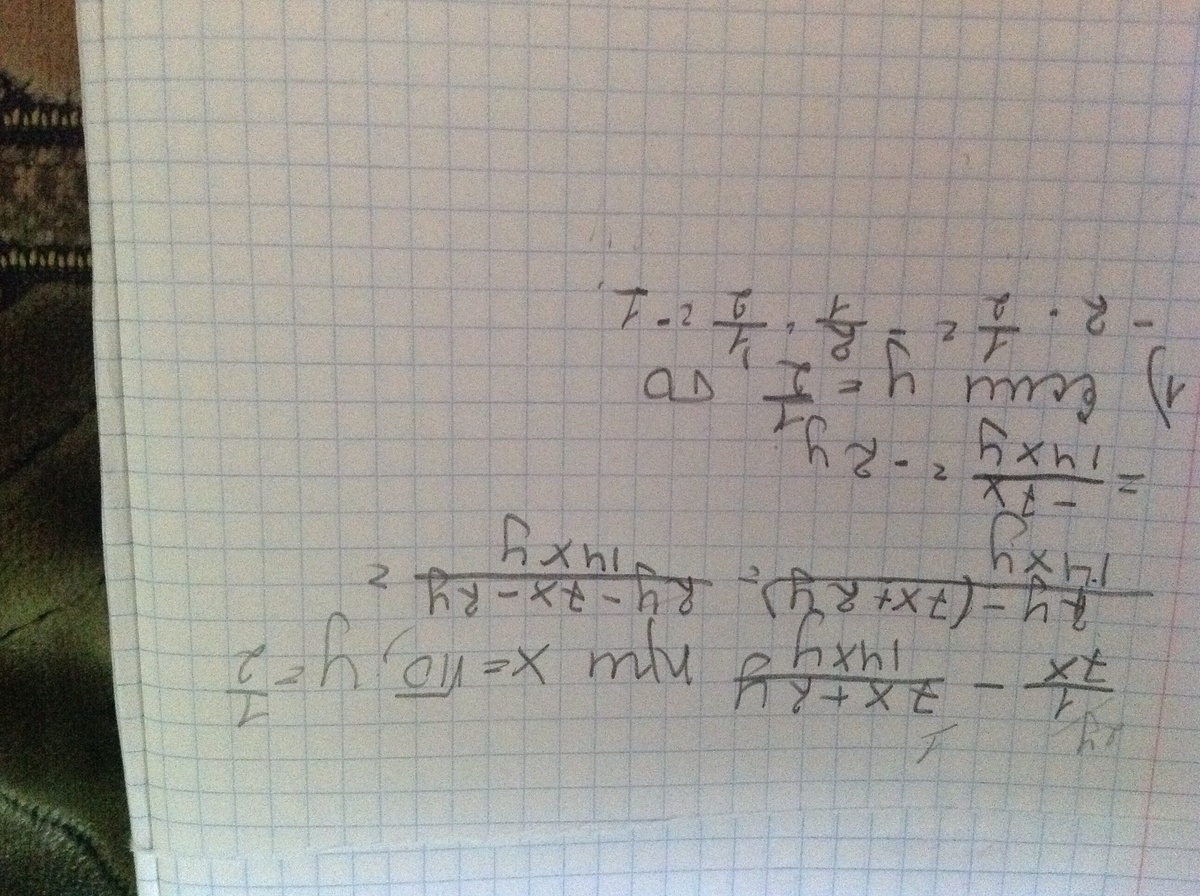 2y 1
1/7x - 7x+2y/14xy при x = √10, y = 1/2
2y-(7x+2y)/14xy = 2y-7x-2y/14xy =
= -7x/14xy = -2y
1) если y = 1/2, то
-2 · 1/2 = -2/1 · 1/2 = -1